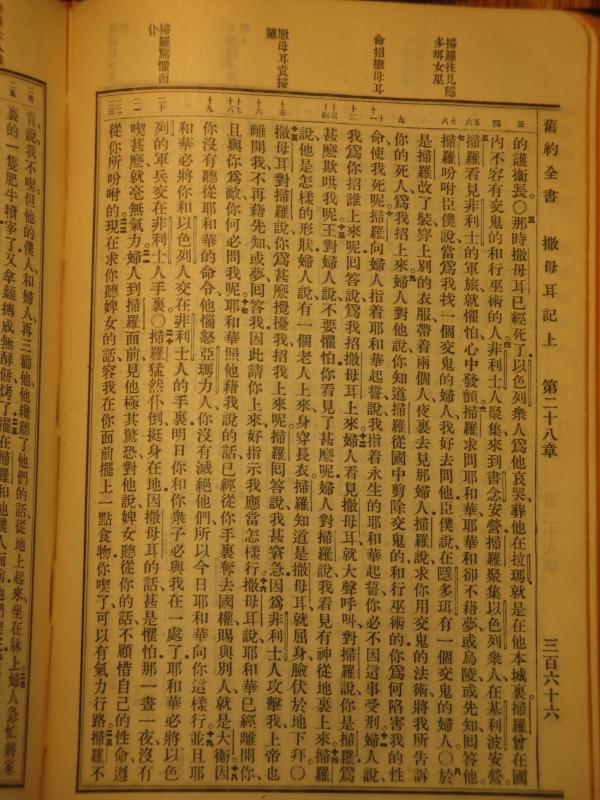 舊約全書 撒母耳記上 第二十八章 三百六十六
掃羅往見隱多珥女巫
命招撒母耳
撒母耳責掃羅
掃羅驚懼而仆
的護衛長〇那時撒母耳已經死了以色列衆人爲他哀哭葬他在拉瑪就是在他本城裏掃羅曾在國
內不容有交鬼的和行巫術的人非利士人聚集來到書念安營掃羅聚集以色列衆人在基利波安營
掃羅看見非利士的軍旅就懼怕心中發顫掃羅求問耶和華耶和華卻不藉夢或烏陵或先知回答他
掃羅吩咐臣僕說當爲我找一個交鬼的婦人我好去問他臣僕說在隱多珥有一個交鬼的婦人〇於
是掃羅改了裝穿上別的衣服帶着兩個人夜裏去見那婦人掃羅說求你用交鬼的法術將我所告訴
你的死人爲我招上來婦人對他說你知道掃羅從國中剪除交鬼的和行巫術的你爲何陷害我的性
命使我死呢掃羅向婦人指着耶和華起誓說我指着永生的耶和華起誓你必不因這事受刑婦人說
我爲你招誰上來呢回答說爲我招撒母耳上來婦人看見撒母耳就大聲呼叫對掃羅說你是掃羅爲
甚麽欺哄我呢王對婦人說不要懼怕你看見了甚麽呢婦人對掃羅說我看見有神從地裏上來掃羅
說他是怎樣的形狀婦人說有一個老人上來身穿長衣掃羅知道是撒母耳就屈身臉伏於地下拜〇
撒母耳對掃羅說你爲甚麽攪擾我招我上來呢掃羅回答說我甚窘急因爲非利士人攻擊我上帝也
離開我不再藉先知或夢回答我因此請你上來好指示我應當怎樣行撒母耳說耶和華已經離開你
且與你爲敵你何必問我呢耶和華照他藉我說的話已經從你手裏奪去國權賜與別人就是大衛因
你沒有聽從耶和華的命令他惱怒亞瑪力人你沒有滅絕他們所以今日耶和華向你這樣行並且耶
和華必將你和以色列人交在非利士人的手裏明日你和你衆子必與我在一處了耶和華必將以色
列的軍兵交在非利士人手裏〇掃羅猛然仆倒挺身在地因撒母耳的話甚是懼怕那一晝一夜沒有
喫甚麽就毫無氣力婦人到掃羅面前見他極其驚恐對他說婢女聽從你的話不顧惜自己的性命遵
從你所吩咐的現在求你聽婢女的話容我在你面前擺上一點食物你喫了可以有氣力行路掃羅不
肯說我不喫但他的僕人和婦人再三勸他他纔聽了他們的話從地上起來坐在牀上婦人急忙將家
裏的一隻肥牛犢宰了又拿麵摶成無酵餅烤了擺在掃羅和他僕人面前他們